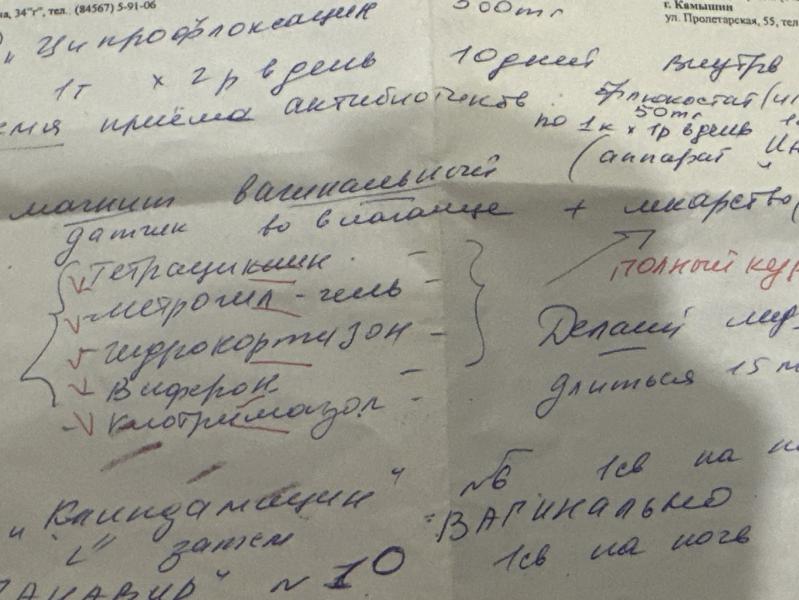 на, 34"г", тел.: (84567) 5-91-06
г. Камышин
ул. Пролетарская, 55, тел
"Ципрофлоксацин 500мг
1т х 2р в день 10 дней внутрь
приёма антибиотиков Флюкостат
50мг
по 1к х 1р в день
(аппарат "Ин
магнит вагинальный
датчик во влагалище + лекарство (
полный кур
Тетрациклин -
Метрогил-гель -
Гидрокортизон -
Виферон -
Клотримазол -
Делаем
длиться 15 м
"Клиндамацин" №6 1св на но
вагинально
затем
№10 1св на ночь